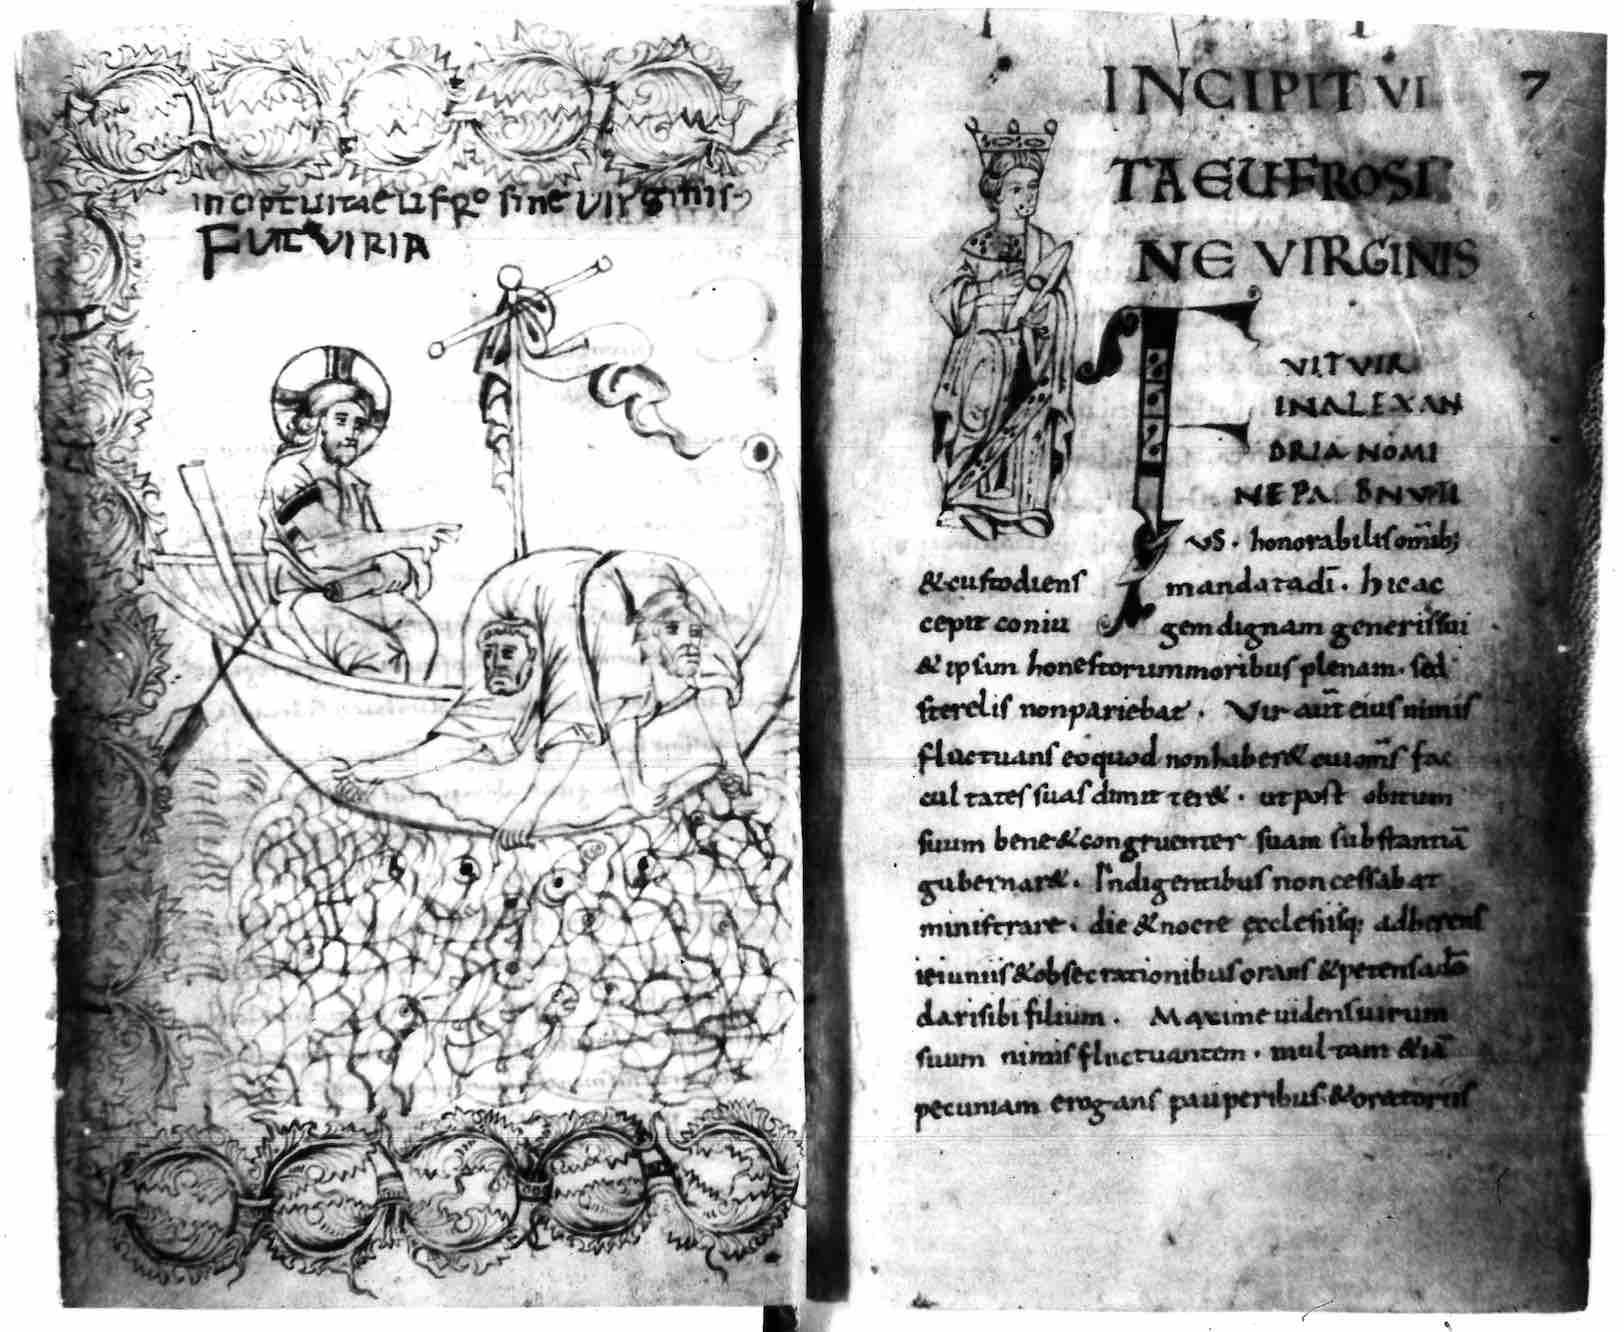 incipit uita eufrosine virginis
FUIT VIR IA
7
INCIPIT VI
TA EUFROSI
NE VIRGINIS
FVIT VIR
IN ALEXAN
DRIA NOMI
NE PA BNVTI
VS · honorabilis omīb;
& custodiens mandata dī · hic ac
cepit coniu gem dignam generis sui
& ipsam honestorum moribus plenam · sed
sterelis non pariebat · Vir aūt eius nimis
fluctuans eo quod non haber& cui om̄s fac
cultates suas dimitter& · ut post obitum
suum bene & congruenter suam substantiā
gubernar& · Indigentibus non cessabat
ministrare · die & nocte ecclesiisq; adherens
ieiuniis & obsecrationibus orans & petens a dō
dari sibi filium · Maxime uidens uirum
suum nimis fluctuantem · multam & iā
pecuniam erogans pauperibus & oratoriis